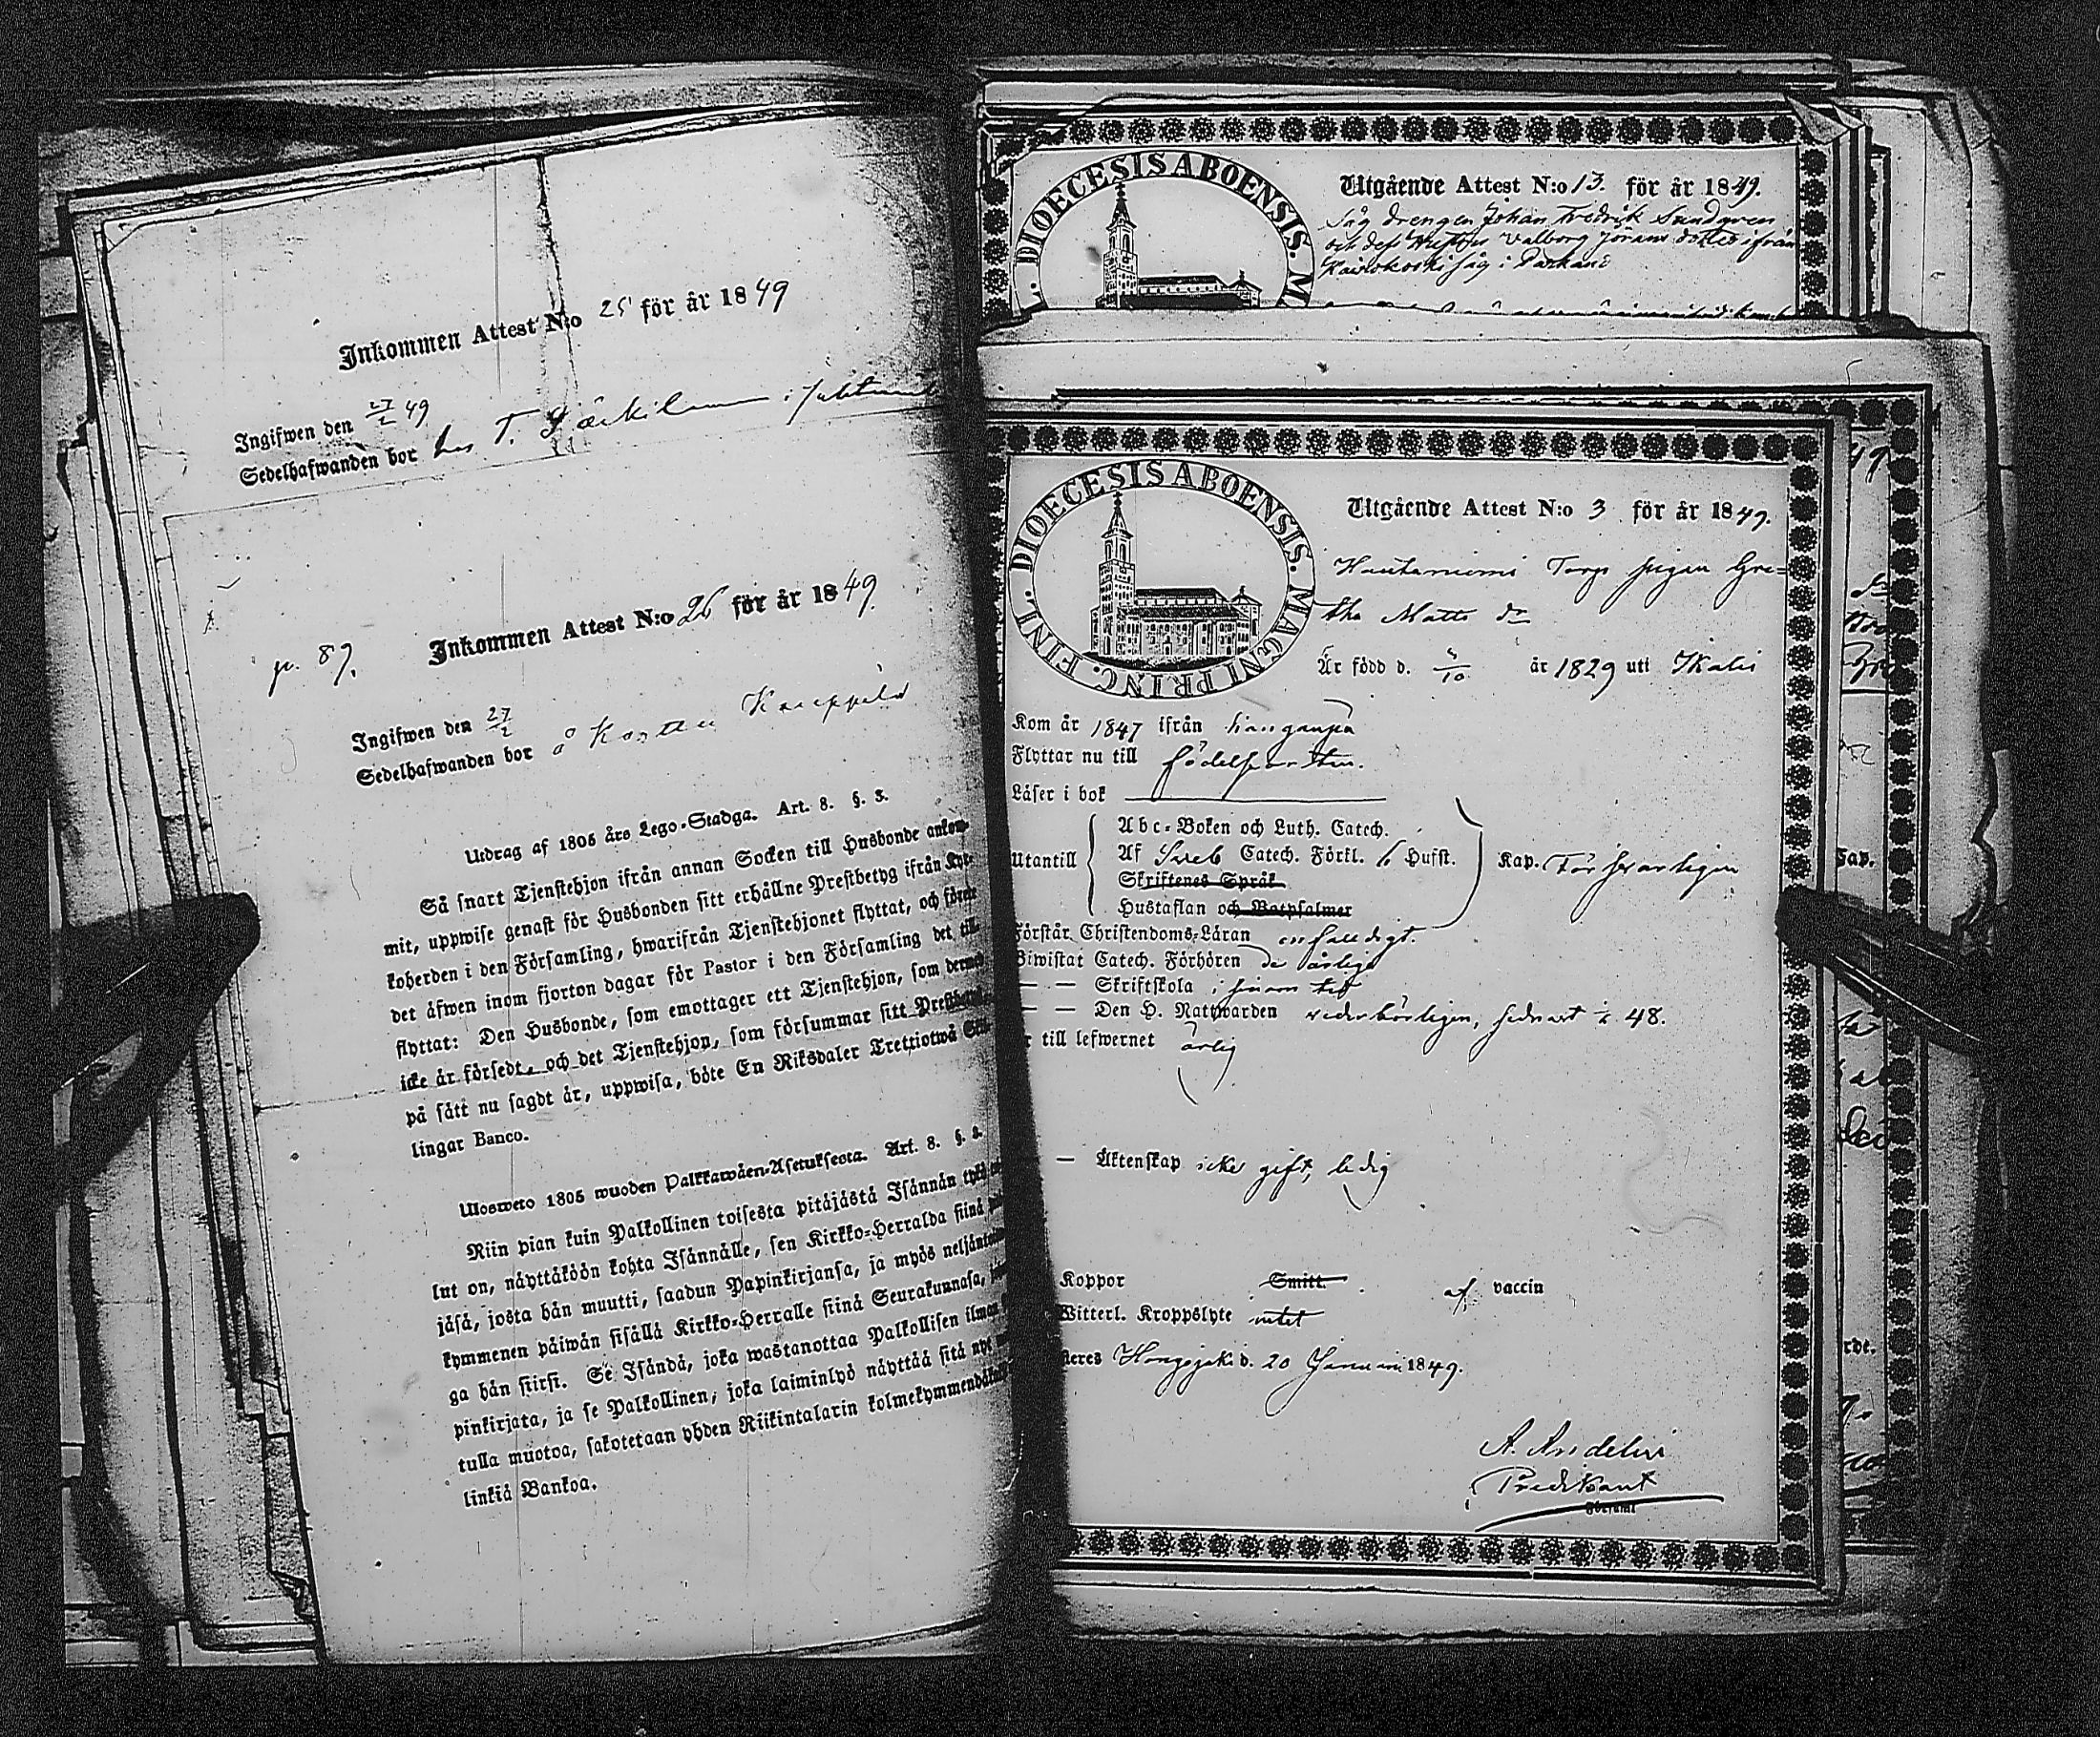 Inkommen Attest N:o 25 för år 1849
Ingifwen den 27/2 49
Sedelhafwanden bor hos T. i
Inkommen Attest N:o 26 för år 1849.
p. 87.
Ingifwen den 27/2
Sedelhafwanden bor å
Utdrag af 1805 års Lego-Stadga. Art. 8. §. 3.
Så snart Tjenstehjon ifrån annan Socken till Husbonde ankom-
mit, uppwise genast för Husbonden sitt erhållne Prestbetyg ifrån Kyr-
koherden i den Församling, hwarifrån Tjenstehjonet flyttat, och förete
det äfwen inom fjorton dagar för Pastor i den Församling det till
flyttat: Den Husbonde, som emottager ett Tjenstehjon, som dermed
icke är försedt, och det Tjenstehjon, som försummar sitt Prestbetyg,
på sätt nu sagdt är, uppwisa, böte En Riksdaler Trettiotwå Skil-
lingar Banco.
Ulosweto 1805 wuoden Palkkawäen-Asetuksesta. Art. 8. §. 3.
Niin pian kuin Palkollinen toisesta pitäjästä Isännän tykö
lut on, näyttäköön kohta Isännälle, sen Kirkko-Herralda siinä
jäsä, josta hän muutti, saadun Papinkirjansa, ja myös neljäntoista
kymmenen päiwän sisällä Kirkko-Herralle siinä Seurakunnasa,
ga hän siirsi. Se Isändä, joka wastanottaa Palkollisen ilman
pinkirjata, ja se Palkollinen, joka laiminlyö näyttää sitä nyt
tulla muotoa, sakotetaan yhden Riikintalarin kolmekymmendäkaksi
linkiä Bankoa.
DIOECESIS ABOENSIS. M
Utgående Attest N:o 13. för år 1849.
Såg drengen Johan Fredrik Sundgren
och dess Hustru Valborg Jörans dotter ifrån
Kairokoski såg i Parkano
DIOECESIS ABOENSIS. MAGNI PRINC. FINL.
Utgående Attest N:o 3 för år 1849.
Hautaniemi Torp pigan Gre=
tha Matts dr
Är född d. 5/10 år 1829 uti Ikalis
Kom år 1847 ifrån Kangaspä
Flyttar nu till födelseorten.
Läser i bok
Utantill
Abc-Boken och Luth. Catech.
Af Sweb Catech. Förkl. 6 Hufst.
Skriftenes Språk
Hustaflan och Botpsalmer
Kap. Försvarligen
Förstår Christendoms-Läran enfaldigt.
Biwistat Catech. Förhören de årlige
— — Skriftskola i sinom tid
— — Den H. Nattwarden vederbörligen, sednast 48.
r till lefwernet ärlig
— Äktenskap icke gift, ledig
Koppor Smitt. af vaccin
Witterl. Kroppslyte intet
teres Hongojoki d. 20 Januari 1849.
A. Andelin
Predikant
Församl